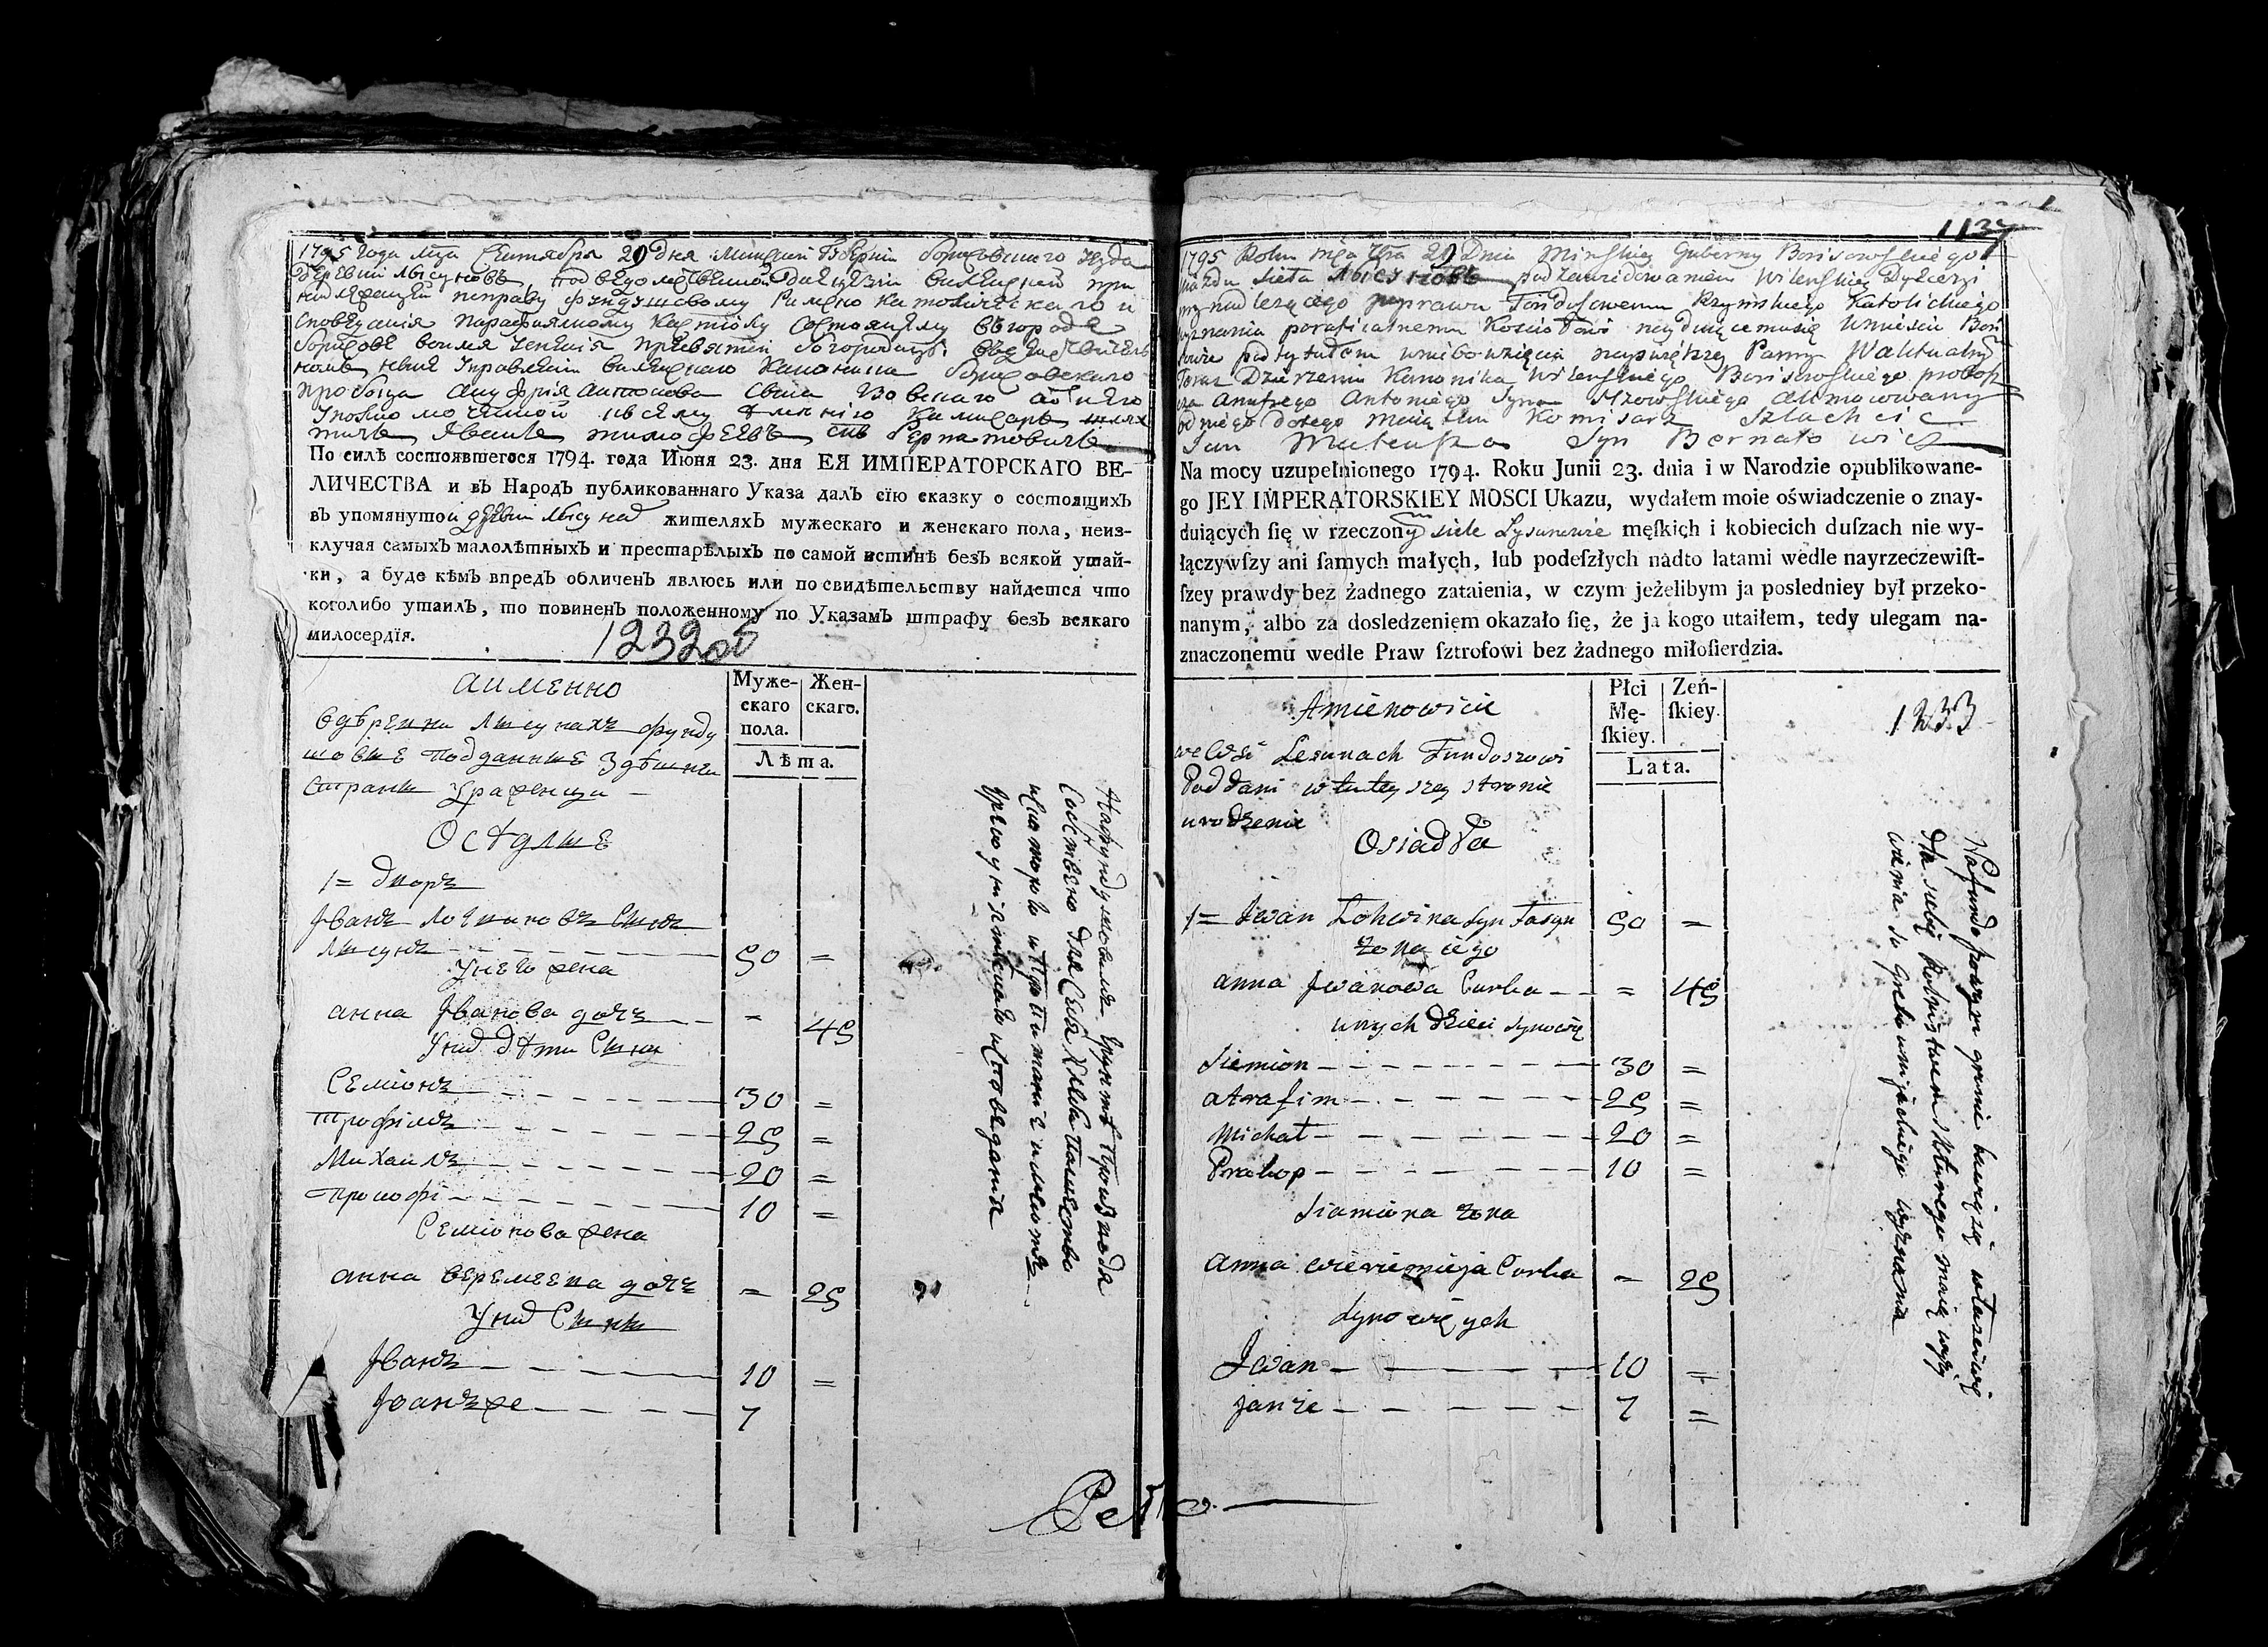 1795 года мца Сентября 29 дня Минской Губернии Борисовского уезда
деревни Лысуновъ, подведомственной Диецезии Виленской при
надлежащей поправу фундушовому Римско Католическаго и
споведания парафиялному костiолу состоящему въ городе
Борисове воимя успения пресвятой богородицы
ныне управлении виленскаго каноника борисовскаго
пробоща Ануфрiя Антонова сына
уполномоченной Камисаръ шлях
тичъ Iванъ Тимофеевъ сынъ Бернатовичъ
По силѣ состоявшегося 1794. года Июня 23. дня ЕЯ ИМПЕРАТОРСКАГО ВЕ-
ЛИЧЕСТВА и въ Народъ публикованнаго Указа далъ сїю сказку о состоящихъ
въ упомянутой деревни Лысунах жителяхъ мужескаго и женскаго пола, неиз-
ключая самыхъ малолѣтныхъ и престарѣлыхъ по самой истинѣ безъ всякой утай-
ки, а буде кѣмъ впредь обличенъ явлюсь или по свидѣтельству найдется что
коголибо утаилъ, то повиненъ положенному по Указамъ штрафу безъ всякаго
милосердїя.
1232
аименно
Муже-
скаго
пола.
Жен-
скаго.
Лѣта.
вдеревни Лысунахъ фунду
шовые подданные здешнеи
страны уроженцы
Оседлые
1= дворъ
Iванъ Логвиновъ Сынъ
Лысунъ 50 =
Унего жена
анна Iванова дочь = 45
Уних дети Сыны
Семiонъ 30 =
Трофiмъ 25 =
Михаилъ 20 =
Прокофi 10 =
Семiонова жена
анна Веремеева дочь = 25
Уних Сыны
Iванъ 10 =
Iванъже 7
Нафундушовымъ грунте производя
собственно для себя хлебопашество
которого и пропитание имеютъ
Греко унiятского исповедания
1137
1795 Roku 29 Dnia Minskiey Guberny Borisowskiego
siela pod zawiedowaniem Wilenskiey Dyecezi
nadlezącego poprawu Fonduszowemu Rzymskiego Katolickiego
wyznania parafialnemu Kosciołowi naydującemusię wmiescie Bori
sowie pod tytułem wniebowzięcia nayswiętszey Panny Waktualny
Teraz Dzierzeniu Kanonika Wilenskiego Borisowskiego probosz
cza Anufrego Antoniego Syna
od niego dotego maiątku Komisarz Szlachcic
Jan Mateusza Syn Bernatowicz
Na mocy uzupełnionego 1794. Roku Junii 23. dnia i w Narodzie opublikowane-
go JEY IMPERATORSKIEY MOSCI Ukazu, wydałem moie oświadczenie o znay-
duiących ſię w rzeczony siele Lysunowie męſkich i kobiecich duſzach nie wy-
łączywſzy ani ſamych małych, lub podeſzłych nadto latami wedle nayrzeczewiſt-
ſzey prawdy bez żadnego zataienia, w czym jeżelibym ja posledniey był przeko-
nanym, albo za dosledzeniem okazało ſię, że ja kogo utaiłem, tedy ulegam na-
znaczonemu wedle Praw ſztrofowi bez żadnego miłoſierdzia.
Amienowicie
Płci
Mę-
ſkiey.
Zeń-
ſkiey.
Lata.
1233
we Wsi Lesunach Fundoszowi
Poddani wtuteyszey stronie
urodzenie
Osiadła
1= Iwan Łohwina Syn Łasyn 50 =
żona iego
anna Jwanowa Curka = 45
unych dzieci synowię
Siemion 30 =
atrafim 25 =
Michał 20 =
Prakop 10 =
Siamiona żona
anna Curka = 25
synowię ych
Jwan 10 =
janże 7 =
dla siebię
wyznania